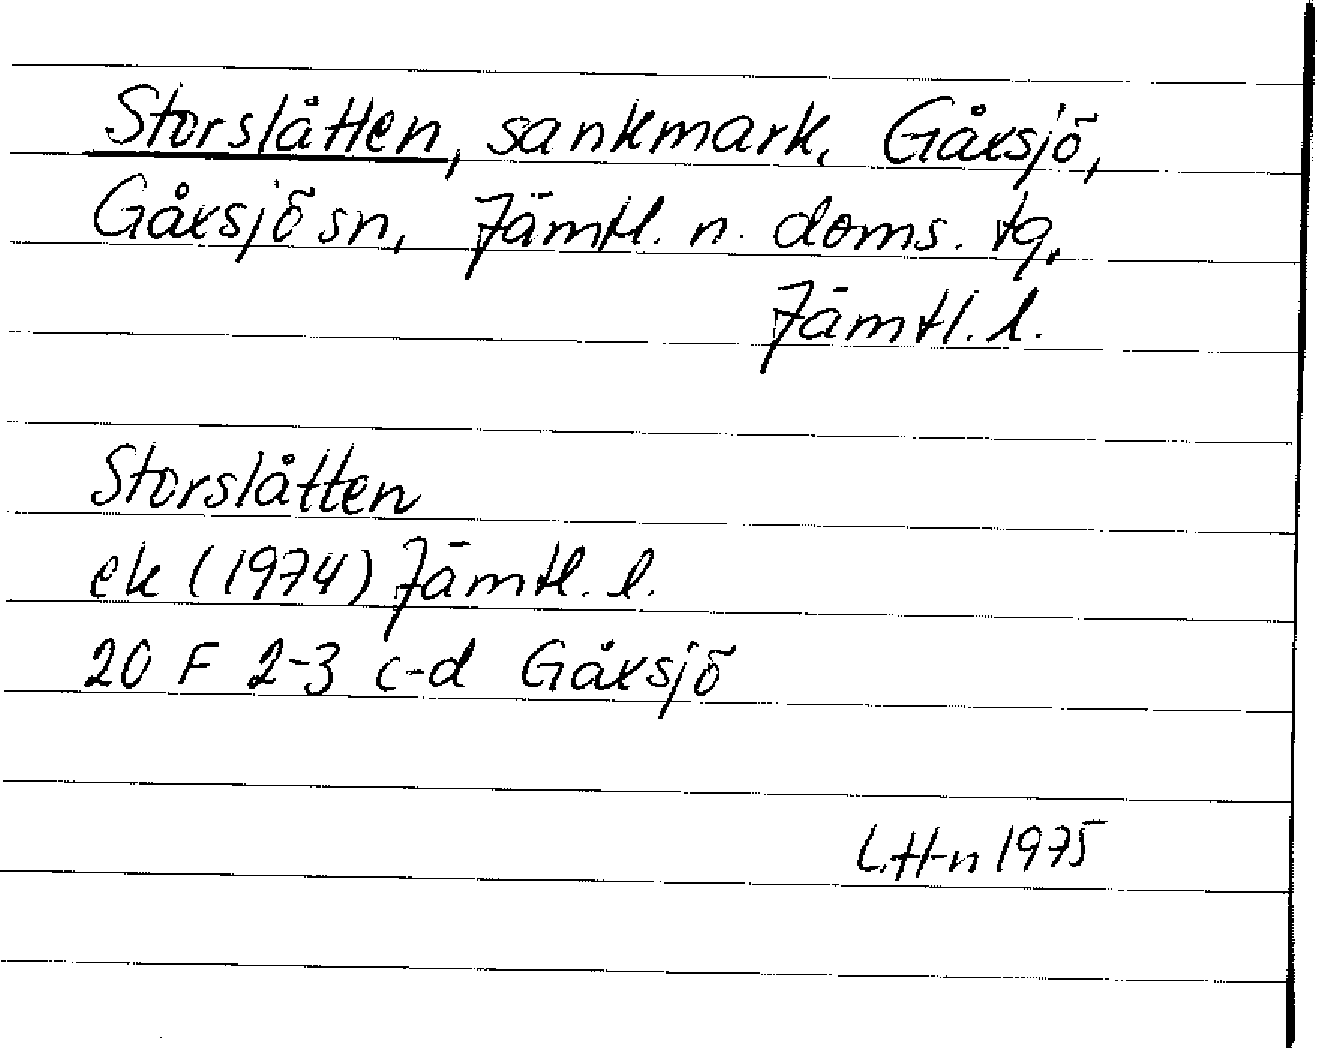 Storslåtten, sankmark, Gåxsjö,
Gåxsjö sn, Jämtl. n. doms. tg,
Jämtl. l.
Storslåtten
ek (1974) Jämtl. l.
20 F 2-3 c-d Gåxsjö
L.H-n 1975